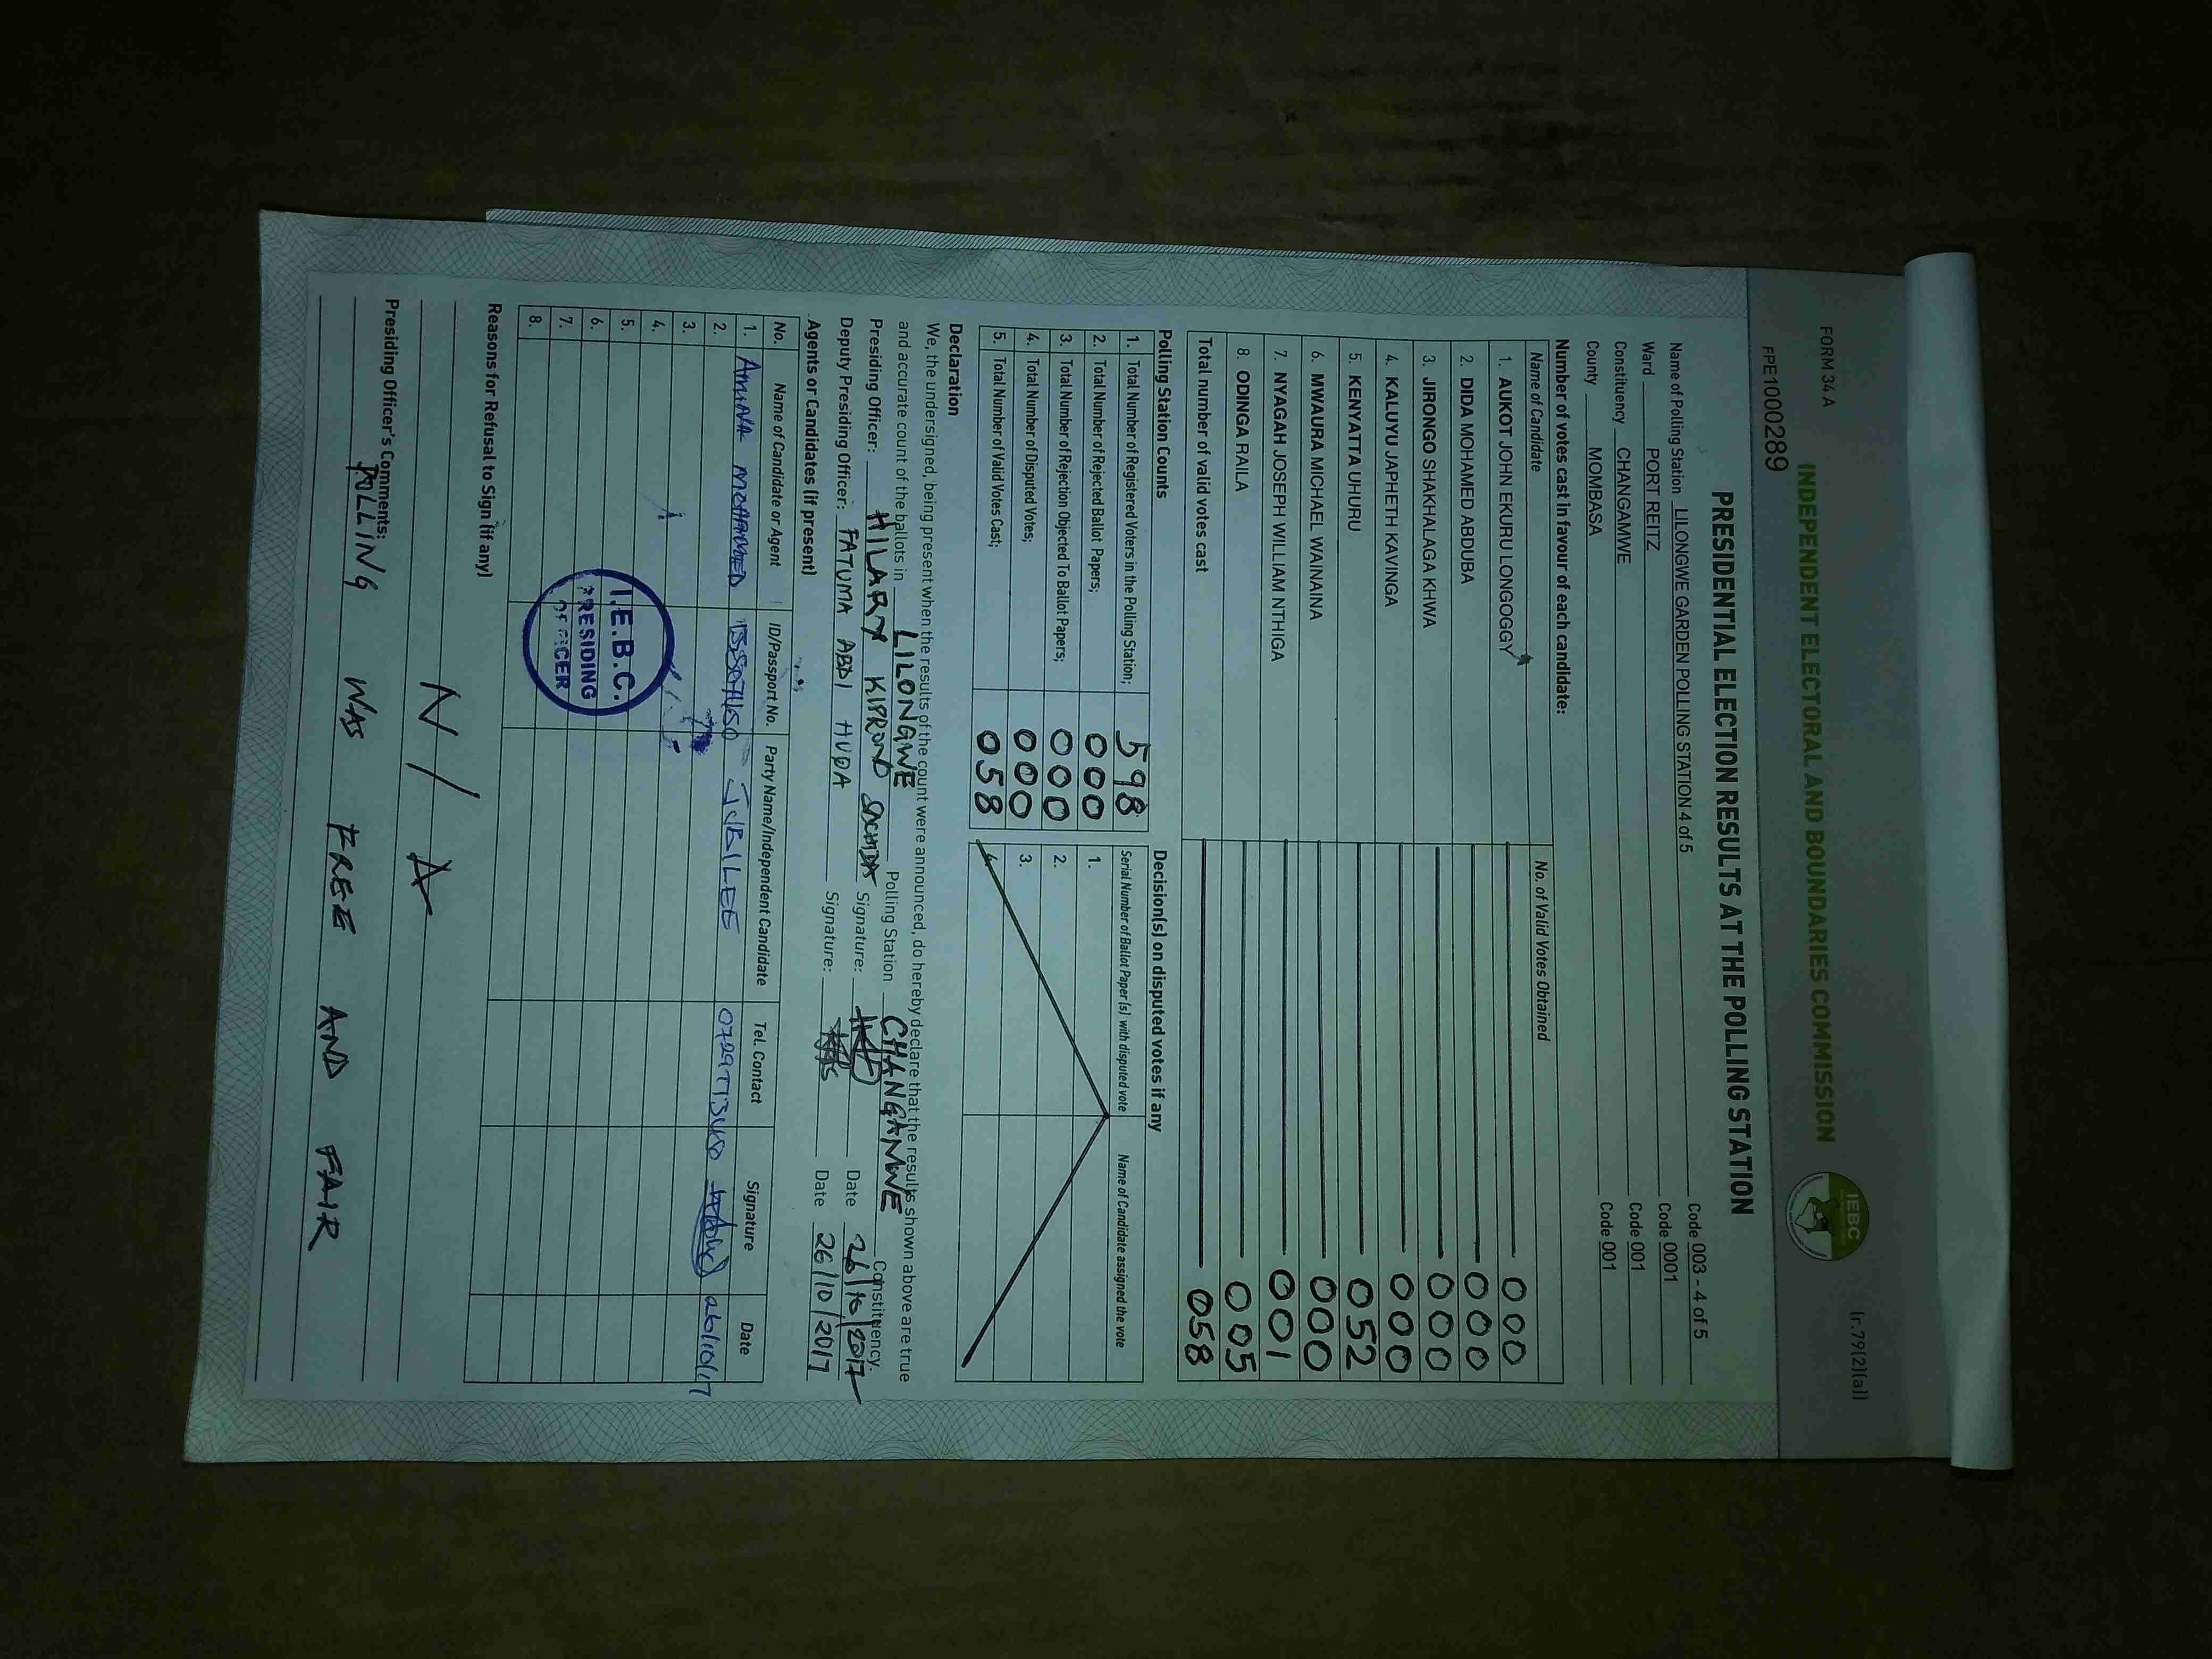 FORM 34 A
(r.79(2)(a))
INDEPENDENT ELECTORAL AND BOUNDARIES COMMISSION
IEBC
FPE1000289
PRESIDENTIAL ELECTION RESULTS AT THE POLLING STATION
Name of Polling Station LILONGWE GARDEN POLLING STATION 4 of 5 Code 003 - 4 of 5
Ward PORT REITZ Code 0001
Constituency CHANGAMWE Code 001
County MOMBASA Code 001
Number of votes cast in favour of each candidate:
Name of Candidate No. of Valid Votes Obtained
1. AUKOT JOHN EKURU LONGOGGY 000
2. DIDA MOHAMED ABDUBA 000
3. JIRONGO SHAKHALAGA KHWA 000
4. KALUYU JAPHETH KAVINGA 000
5. KENYATTA UHURU 052
6. MWAURA MICHAEL WAINAINA 000
7. NYAGAH JOSEPH WILLIAM NTHIGA 001
8. ODINGA RAILA 005
Total number of valid votes cast 058
Polling Station Counts
1. Total Number of Registered Voters in the Polling Station; 598
2. Total Number of Rejected Ballot Papers; 000
3 Total Number of Rejection Objected To Ballot Papers; 000
4. Total Number of Disputed Votes; 000
5. Total Number of Valid Votes Cast; 058
Decision(s) on disputed votes if any
Serial Number of Ballot Paper (s) with disputed vote Name of Candidate assigned the vote
1.
2.
3.
4.
Declaration
We, the undersigned, being present when the results of the count were announced, do hereby declare that the results shown above are true
and accurate count of the ballots in LILONGWE Polling Station CHANGAMWE Constituency.
Presiding Officer: HILARY Signature: Date 26/10/2017
Deputy Presiding Officer: FATUMA ABDI HUDA Signature: Date 26/10/2017
Agents or Candidates (if present)
No. Name of Candidate or Agent ID/Passport No. Party Name/Independent Candidate Tel. Contact Signature Date
1. AMINA MOHAMMED JUBILEE 26/10/17
2.
3.
4.
5.
6.
7.
8.
I.E.B.C.
PRESIDING
OFFICER
Reasons for Refusal to Sign (if any)
N/A
Presiding Officer's Comments:
POLLING WAS FREE AND FAIR